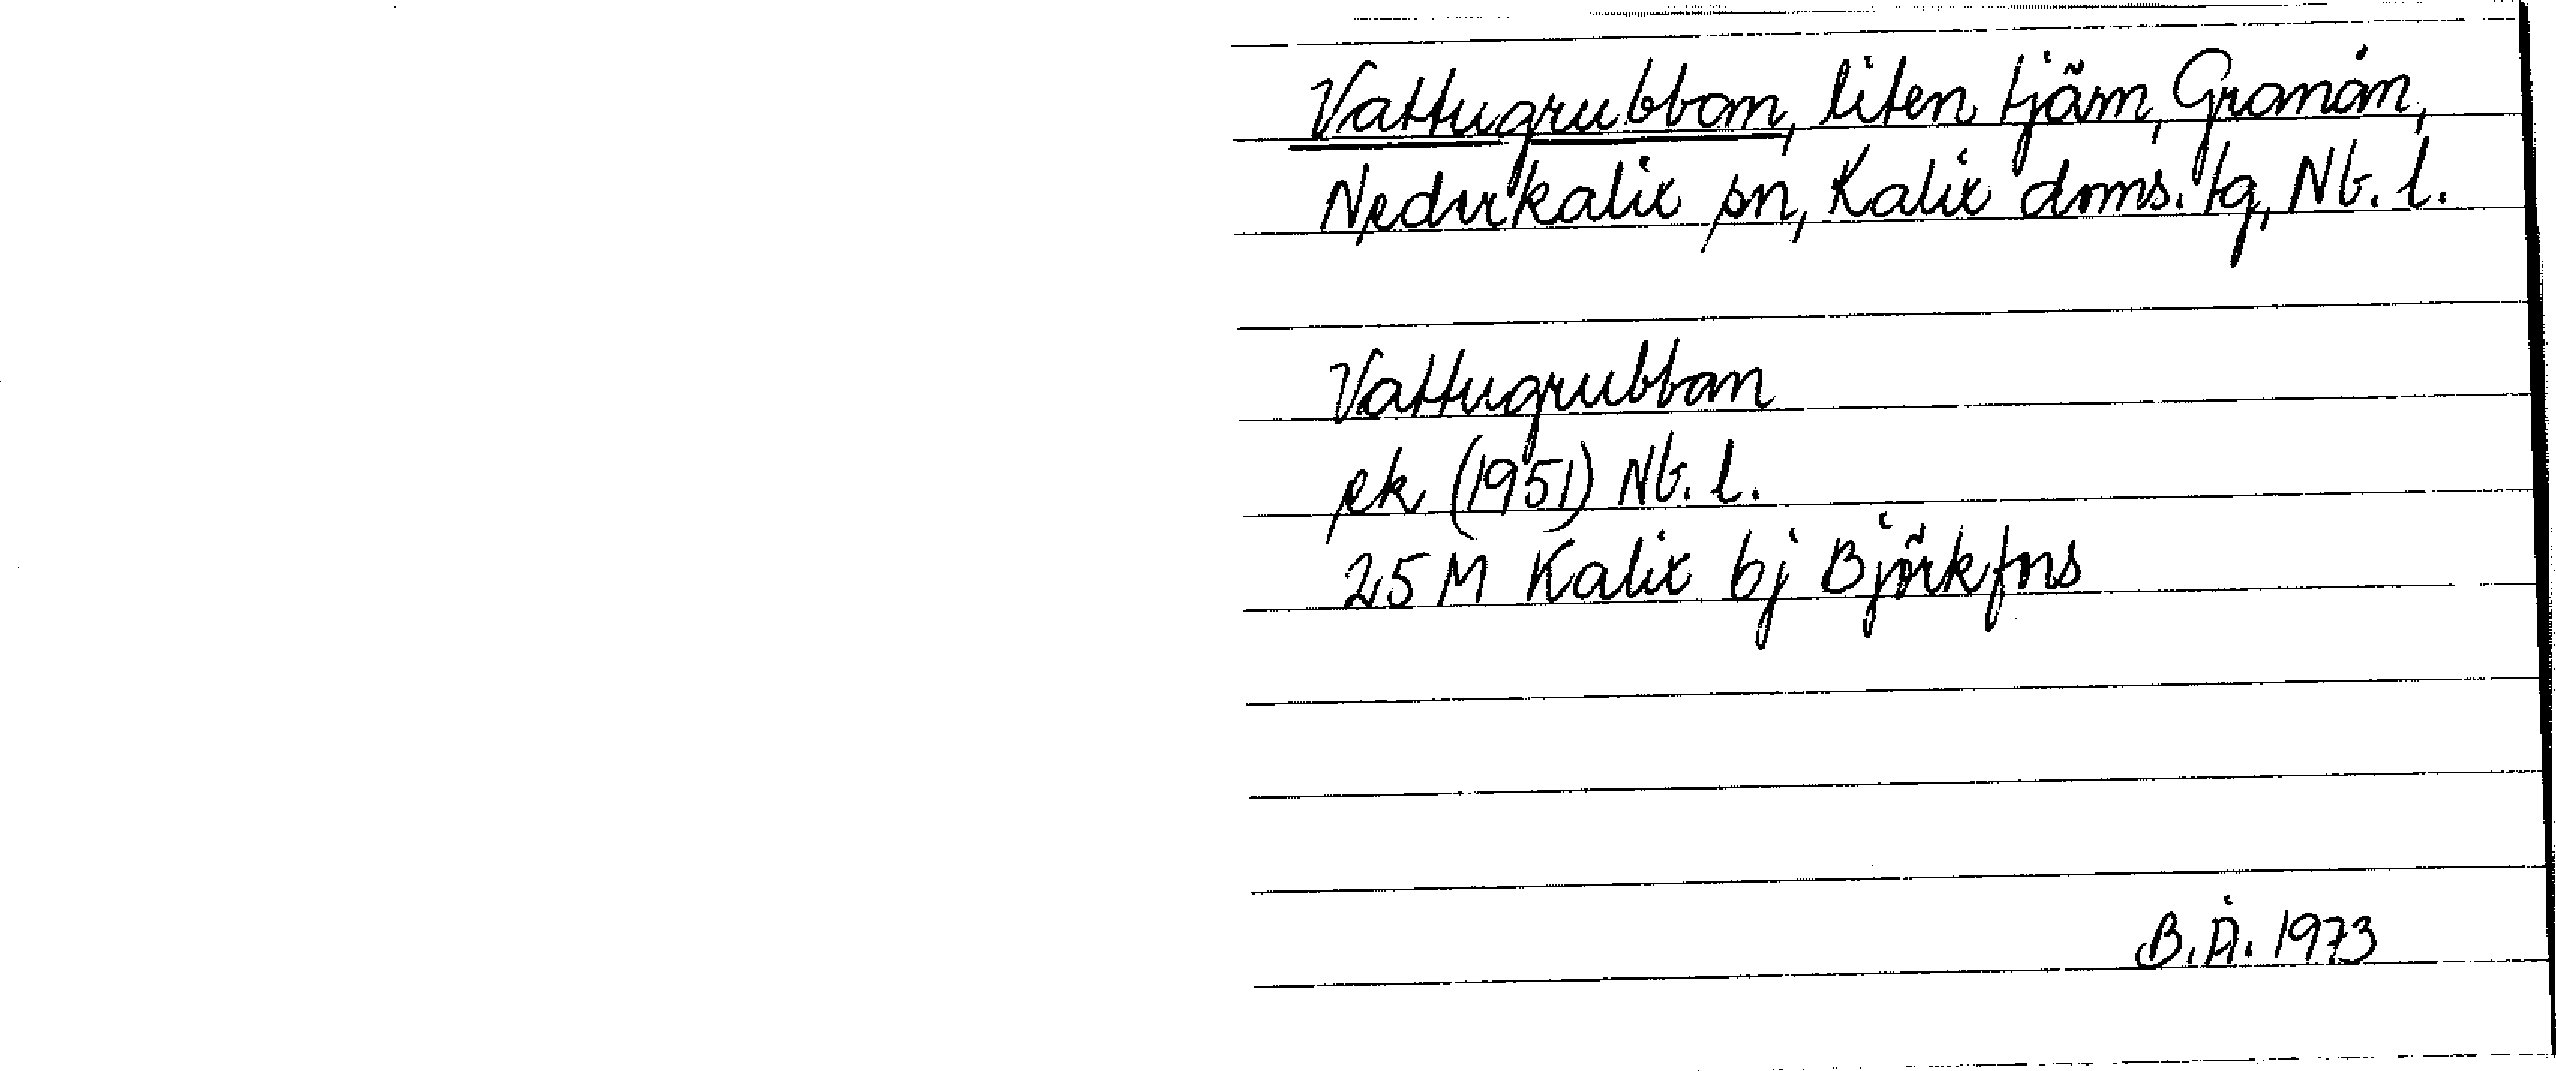 Vattugrubban, liten tjärn, Granån,
Nederkalix sn, Kalix doms. tg, Nb. l.
Vattugrubban
ek (1951) Nb. l.
25 M Kalix bj Björkfors
B.Å. 1973